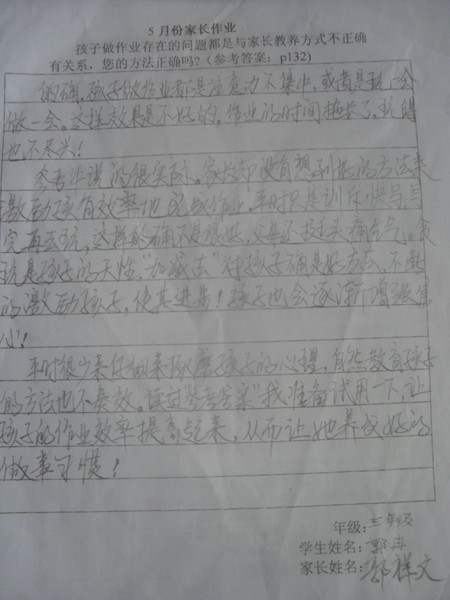 5月份家长作业
孩子做作业存在的问题都是与家长教养方式不正确
有关系，您的方法正确吗？（参考答案：p132）
的确，孩子做作业都是注意力不集中，或者是玩一会
做一会。这样效果是不好的，作业的时间拖长了，玩得
也不尽兴！
参考书说的很实际。家长却没有想到好的方法来
激励孩子有效率地完成作业，平时只是训斥快写，写
完再去玩。这样的确不是很好，父母还
玩是孩子的天性，"加减法"对孩子确是好方法，不断
的激励孩子，使其进步！孩子也会逐渐增强信
心！
平时很少来仔细来琢磨孩子的心理，自然教育孩子
的方法也不奏效。读过参考答案"我准备试用一下，让
孩子的作业效率提高起来，从而让她养成好的
做事习惯！
年级：三年级
学生姓名：
家长姓名：郭祥文